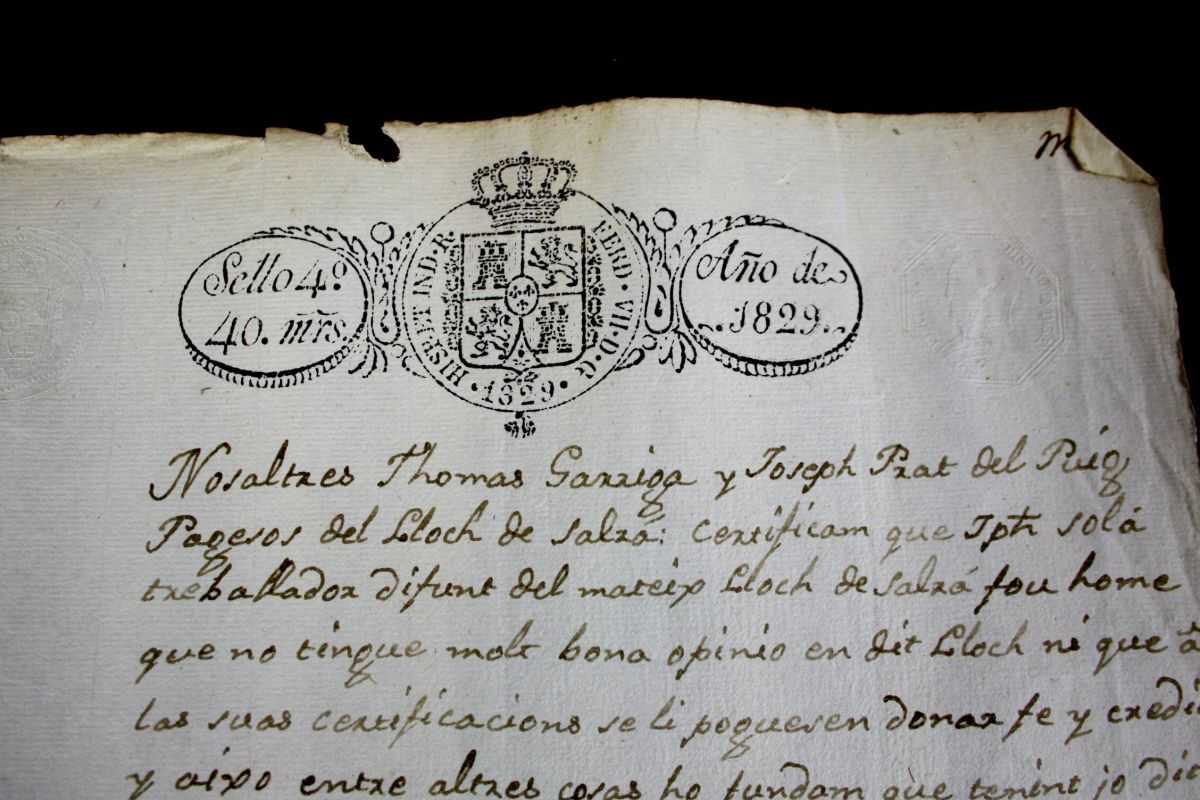 m
Sello 4º.
40. mrs.
HISP. ET IND. R.
FERD. VII. D. G.
· 1829 ·
Año de
1829.
Nosaltres Thomas Garriga y Joseph Prat del Puig
Pagesos del Lloch de Salrá: certificam que Jph Solá
treballador difunt del mateix Lloch de Salrá fou home
que no tingue molt bona opinio en dit Lloch ni que á
las suas certificacions se li poguesen donar fe y credi
y aixo entre altres cosas ho fundam que tenint jo dit